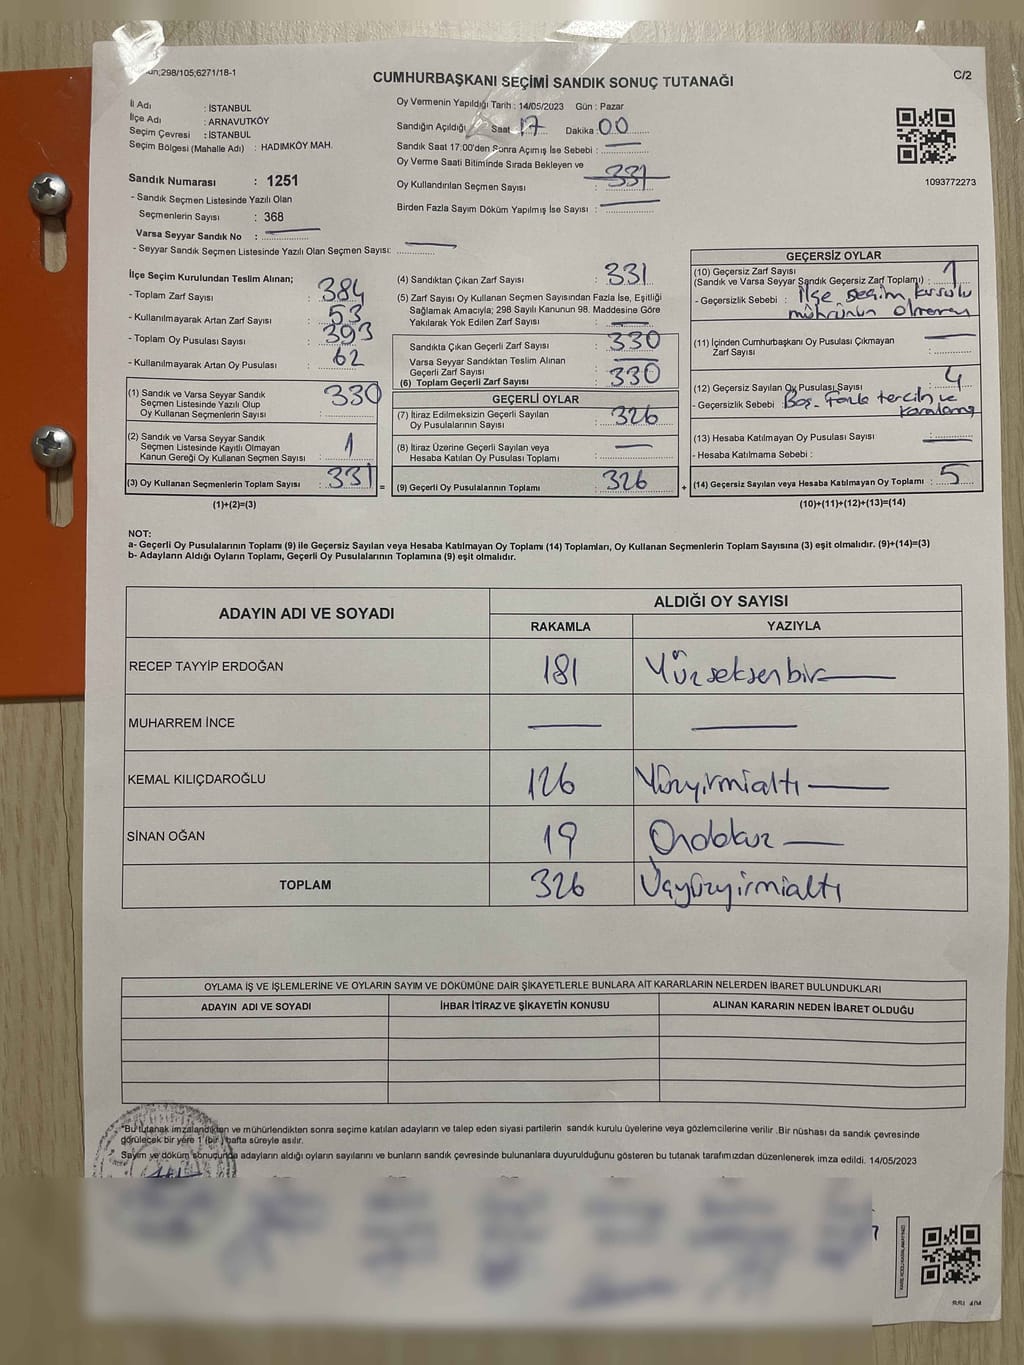 298/105;6271/18-1
C/2
CUMHURBAŞKANI SEÇİMİ SANDIK SONUÇ TUTANAĞI
İl Adı : İSTANBUL
İlçe Adı : ARNAVUTKÖY
Seçim Çevresi : İSTANBUL
Seçim Bölgesi (Mahalle Adı) : HADIMKÖY MAH.
Sandık Numarası : 1251
- Sandık Seçmen Listesinde Yazılı Olan
Seçmenlerin Sayısı : 368
Varsa Seyyar Sandık No :
- Seyyar Sandık Seçmen Listesinde Yazılı Olan Seçmen Sayısı:
Oy Vermenin Yapıldığı Tarih : 14/05/2023 Gün : Pazar
Sandığın Açıldığı Saat 17 Dakika : 00
Sandık Saat 17:00'den Sonra Açımış İse Sebebi :
Oy Verme Saati Bitiminde Sırada Bekleyen ve
Oy Kullandırılan Seçmen Sayısı : 331
Birden Fazla Sayım Döküm Yapılmış İse Sayısı :
1093772273
İlçe Seçim Kurulundan Teslim Alınan;
- Toplam Zarf Sayısı : 384
- Kullanılmayarak Artan Zarf Sayısı : 53
- Toplam Oy Pusulası Sayısı : 393
- Kullanılmayarak Artan Oy Pusulası : 62
(1) Sandık ve Varsa Seyyar Sandık
Seçmen Listesinde Yazılı Olup
Oy Kullanan Seçmenlerin Sayısı : 330
(2) Sandık ve Varsa Seyyar Sandık
Seçmen Listesinde Kayıtlı Olmayan
Kanun Gereği Oy Kullanan Seçmen Sayısı : 1
(3) Oy Kullanan Seçmenlerin Toplam Sayısı : 331 =
(1)+(2)=(3)
(4) Sandıktan Çıkan Zarf Sayısı : 331
(5) Zarf Sayısı Oy Kullanan Seçmen Sayısından Fazla İse, Eşitliği
Sağlamak Amacıyla; 298 Sayılı Kanunun 98. Maddesine Göre
Yakılarak Yok Edilen Zarf Sayısı :
Sandıkta Çıkan Geçerli Zarf Sayısı : 330
Varsa Seyyar Sandıktan Teslim Alınan
Geçerli Zarf Sayısı :
(6) Toplam Geçerli Zarf Sayısı : 330
GEÇERLİ OYLAR
(7) İtiraz Edilmeksizin Geçerli Sayılan
Oy Pusulalarının Sayısı : 326
(8) İtiraz Üzerine Geçerli Sayılan veya
Hesaba Katılan Oy Pusulası Toplamı :
(9) Geçerli Oy Pusulalarının Toplamı : 326 +
GEÇERSİZ OYLAR
(10) Geçersiz Zarf Sayısı
(Sandık ve Varsa Seyyar Sandık Geçersiz Zarf Toplamı) : 1
- Geçersizlik Sebebi : İlçe seçim kurulu
mührünün olmaması
(11) İçinden Cumhurbaşkanı Oy Pusulası Çıkmayan
Zarf Sayısı :
(12) Geçersiz Sayılan Oy Pusulası Sayısı : 4
- Geçersizlik Sebebi : Boş - Fazla tercih ve
karalama
(13) Hesaba Katılmayan Oy Pusulası Sayısı :
- Hesaba Katılmama Sebebi :
(14) Geçersiz Sayılan veya Hesaba Katılmayan Oy Toplamı : 5
(10)+(11)+(12)+(13)=(14)
NOT:
a- Geçerli Oy Pusulalarının Toplamı (9) ile Geçersiz Sayılan veya Hesaba Katılmayan Oy Toplamı (14) Toplamları, Oy Kullanan Seçmenlerin Toplam Sayısına (3) eşit olmalıdır. (9)+(14)=(3)
b- Adayların Aldığı Oyların Toplamı, Geçerli Oy Pusulalarının Toplamına (9) eşit olmalıdır.
ADAYIN ADI VE SOYADI
ALDIĞI OY SAYISI
RAKAMLA YAZIYLA
RECEP TAYYİP ERDOĞAN 181 Yüzseksenbir
MUHARREM İNCE
KEMAL KILIÇDAROĞLU 126 Yüzyirmialtı
SİNAN OĞAN 19 Ondokuz
TOPLAM 326 Üçyüzyirmialtı
OYLAMA İŞ VE İŞLEMLERİNE VE OYLARIN SAYIM VE DÖKÜMÜNE DAİR ŞİKAYETLERLE BUNLARA AİT KARARLARIN NELERDEN İBARET BULUNDUKLARI
ADAYIN ADI VE SOYADI İHBAR İTİRAZ VE ŞİKAYETİN KONUSU ALINAN KARARIN NEDEN İBARET OLDUĞU
*Bu tutanak imzalandıktan ve mühürlendikten sonra seçime katılan adayların ve talep eden siyasi partilerin sandık kurulu üyelerine veya gözlemcilerine verilir .Bir nüshası da sandık çevresinde
görülecek bir yere 1 (bir ) hafta süreyle asılır.
* Sayım ve döküm sonucunda adayların aldığı oyların sayılarını ve bunların sandık çevresinde bulunanlara duyurulduğunu gösteren bu tutanak tarafımızdan düzenlenerek imza edildi. 14/05/2023